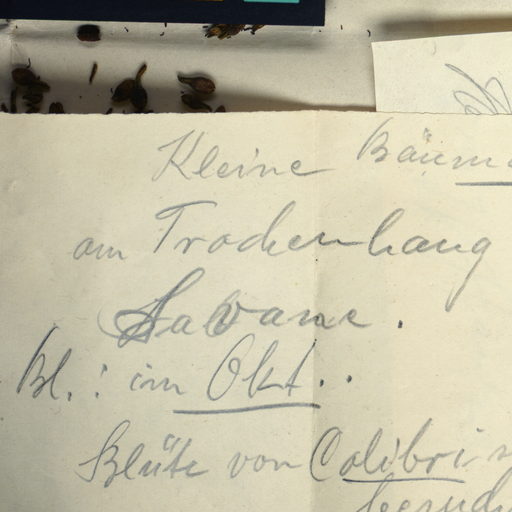 Kleine Bäum
am Trockenhang
Savane.
Bl.: im Okt..
Blüte von Colibri
besuch